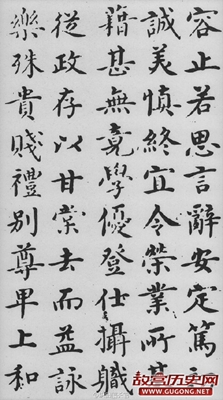 容止若思言辭安定篤
誠美慎終宜令榮業所基
藉甚無竟學優登仕攝職
從政存以甘棠去而益詠
樂殊貴賤禮別尊卑上和
故宫历史网